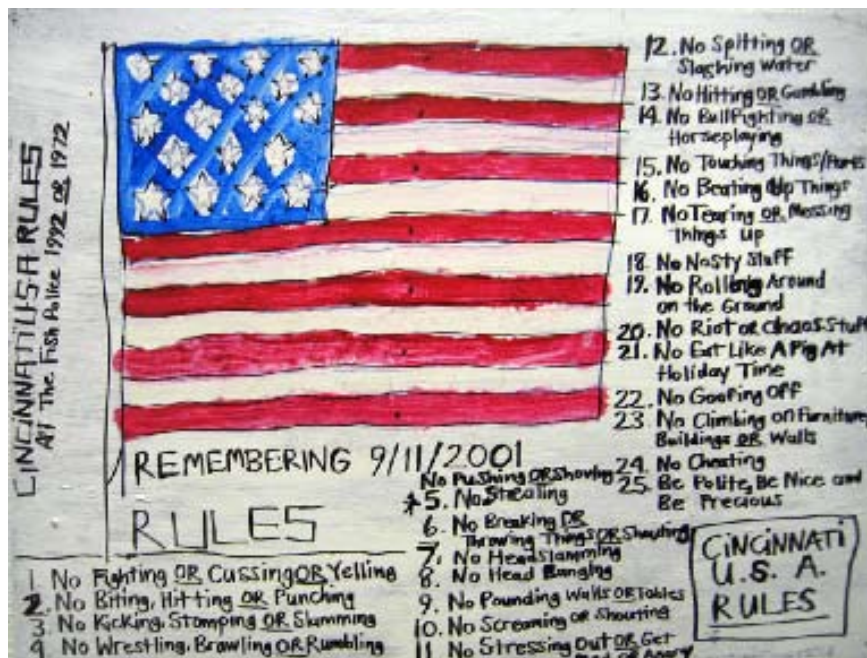 CINCINNATI U.S.A RULES
AT The Fish Police 1992 OR 1972
REMEMBERING 9/11/2001
RULES
1. No Fighting OR Cussing OR Yelling
2. No Biting, Hitting OR Punching
3. No Kicking, Stomping OR Slamming
4 No Wrestling, Brawling OR Rumbling
No Pushing OR Shoving
5. No Stealing
6. No Breaking OR
Throwing Things OR Shouting
7. No Head Slamming
8. No Head Banging
9. No Pounding Walls OR Tables
10. No Screaming OR Shouting
11 No Stressing Out OR Get
OR Angry
12. No Spitting OR
Slashing Water
13. No Hitting OR Gambling
14. No Bullfighting OR
Horseplaying
15. No Touching Things/
16. No Beating Up Things
17. No Tearing OR Messing
Things Up
18. No Nasty Stuff
19. No Rolling Around
on the Ground
20. No Riot or Chaos Stuff
21. No Eat Like A Pig At
Holiday Time
22. No Goofing Off
23. No Climbing on Furniture,
Buildings OR Walls
24. No Cheating
25. Be Polite, Be Nice and
Be Precious
CINCINNATI
U. S. A.
RULES